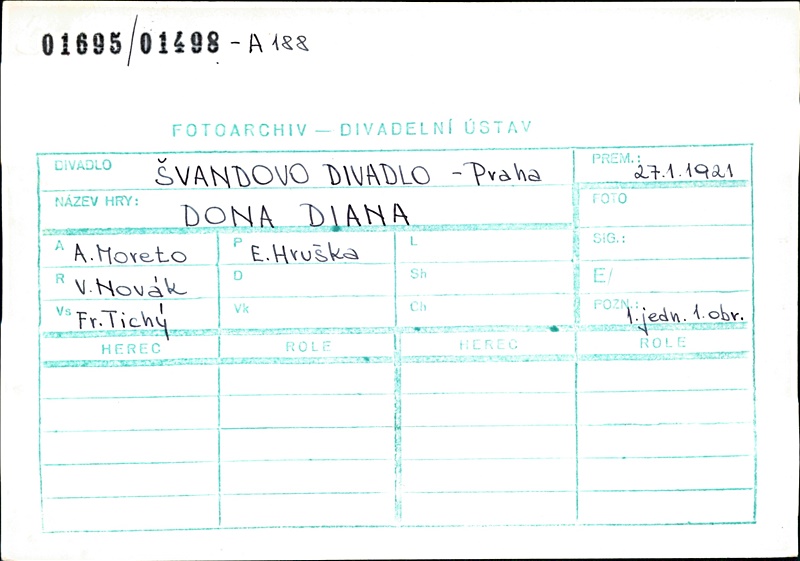 01695/01498 - A 188
FOTOARCHIV — DIVADELNÍ ÚSTAV
DIVADLO ŠVANDOVO DIVADLO - Praha
PREM.: 27.1.1921
NÁZEV HRY: DONA DIANA
FOTO
A A. Moreto
P E. Hruška
L
SIG.:
R V. Novák
D
Sh
E/
Vs Fr. Tichý
Vk
Ch
POZN.: 1. jedn. 1. obr.
HEREC ROLE HEREC ROLE